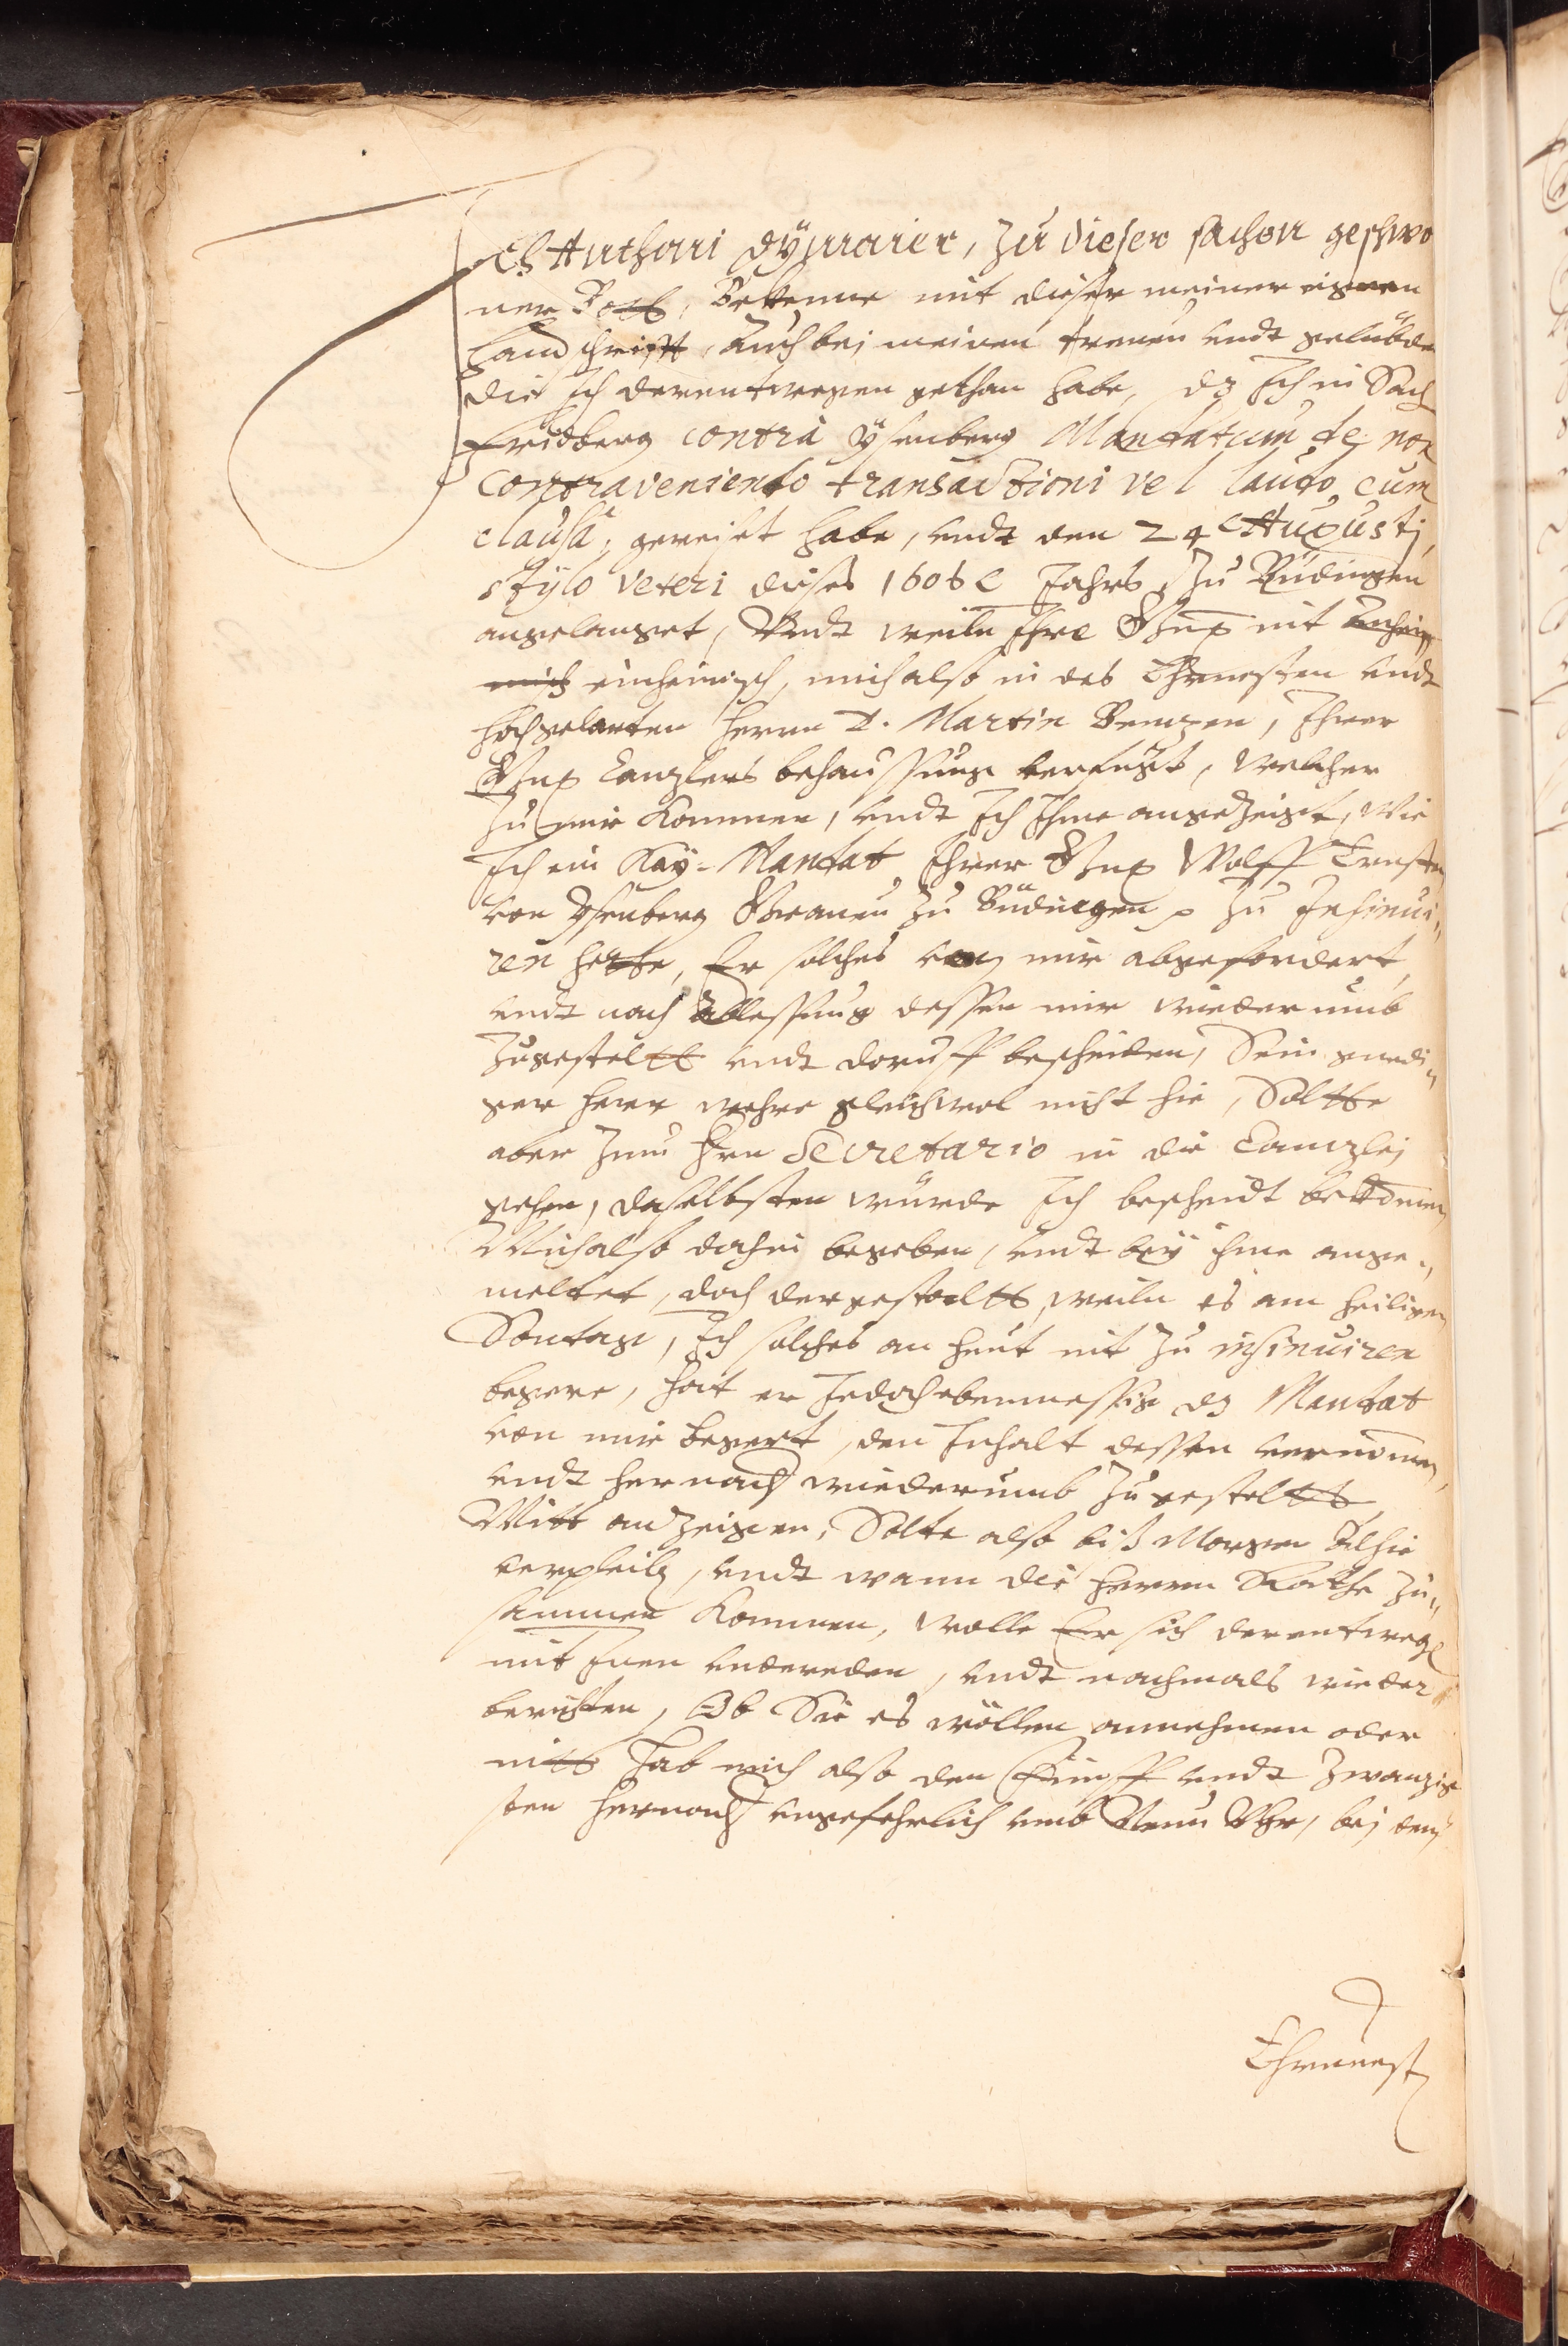 Ich Anthoni Dÿmaier, Zu dieser sachen geschwo
ner Bott, Bekenne mit dieser meiner eignen
handschrifft, auch bei meinen trewen undt gelübden
die ich derentwegen gethan habe, dz Ich in Sach
Fridberg contra Ÿsenberg Mandatum de non
contraveniendo transactioni vel laudo cum
clausa; gereiset habe, undt den 24 Augusti
stÿlo veteri dieses 1606 Jahrs Zu Büdingen
angelanget, Undt weiln Ihre Gn. nit
einheimisch, mich also in des Ehrnvesten undt
hochgelarten Herrn D. Martin, Ihrer
Gn. Canzlers behaussung verfügt, welcher
Zu mir kommen, undt Ich Ihme angezeigt, wie
Ich ein Kaÿ. Mandat Ihrer Gn. Wolff Ernsten
von Ysenberg Graven zu Büdingen p zu Insinui„
ren hette, Er solches von mir abgefordert,
undt nach Ablessung dessen mir wiederumb
Zugesteltt undt doruff bescheiden, Sein gnedi„
ger Herr wehre gleichwol nicht hie, Soltte
aber zum Hrn Secretario in die Canzlej
gehen, daselbsten würde Ich bescheidt bekomen
Mich also dahin begeben, undt beÿ ihme ange„
meltet, doch dergestaltt, weiln es am heiligen
Sontag, Ich solches an heut nit zu insinuiren
begere, hat er Jedoch ebenmessig dz Mandat
von mir begert, den Inhalt dessen vernomen,
undt hernach wiederumb Zugestellt
Mitt anzeigen, Solte also biß Morgen Alhie
verpleiben, undt wann die Herrn Räthe Zu„
sammen kommen, wolle Er sich derentwegen
mit Inen underreden, undt nachmals wieder
berichten, Ob Sie es wöllen annehmen oder
nitt Hab mich also den Fünff undt Zwanzig
sten hernach ungefehrlich umb Neun Uhr, bej dem
Ehrnvest